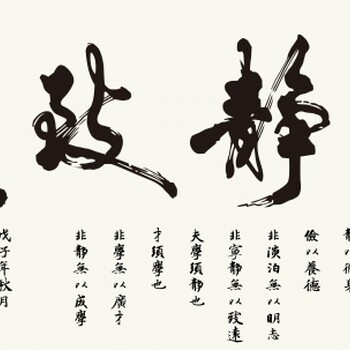 靜致
儉以養德
非淡泊無以明志
非寧靜無以致遠
夫學須靜也
才須學也
非學無以廣才
非靜無以成學
戊子年秋月